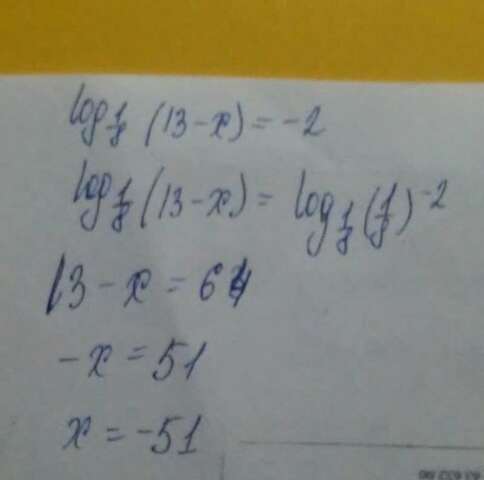 log_{1/8} (13 - x) = -2
log_{1/8} (13 - x) = log_{1/8} (1/8)^{-2}
13 - x = 64
-x = 51
x = -51